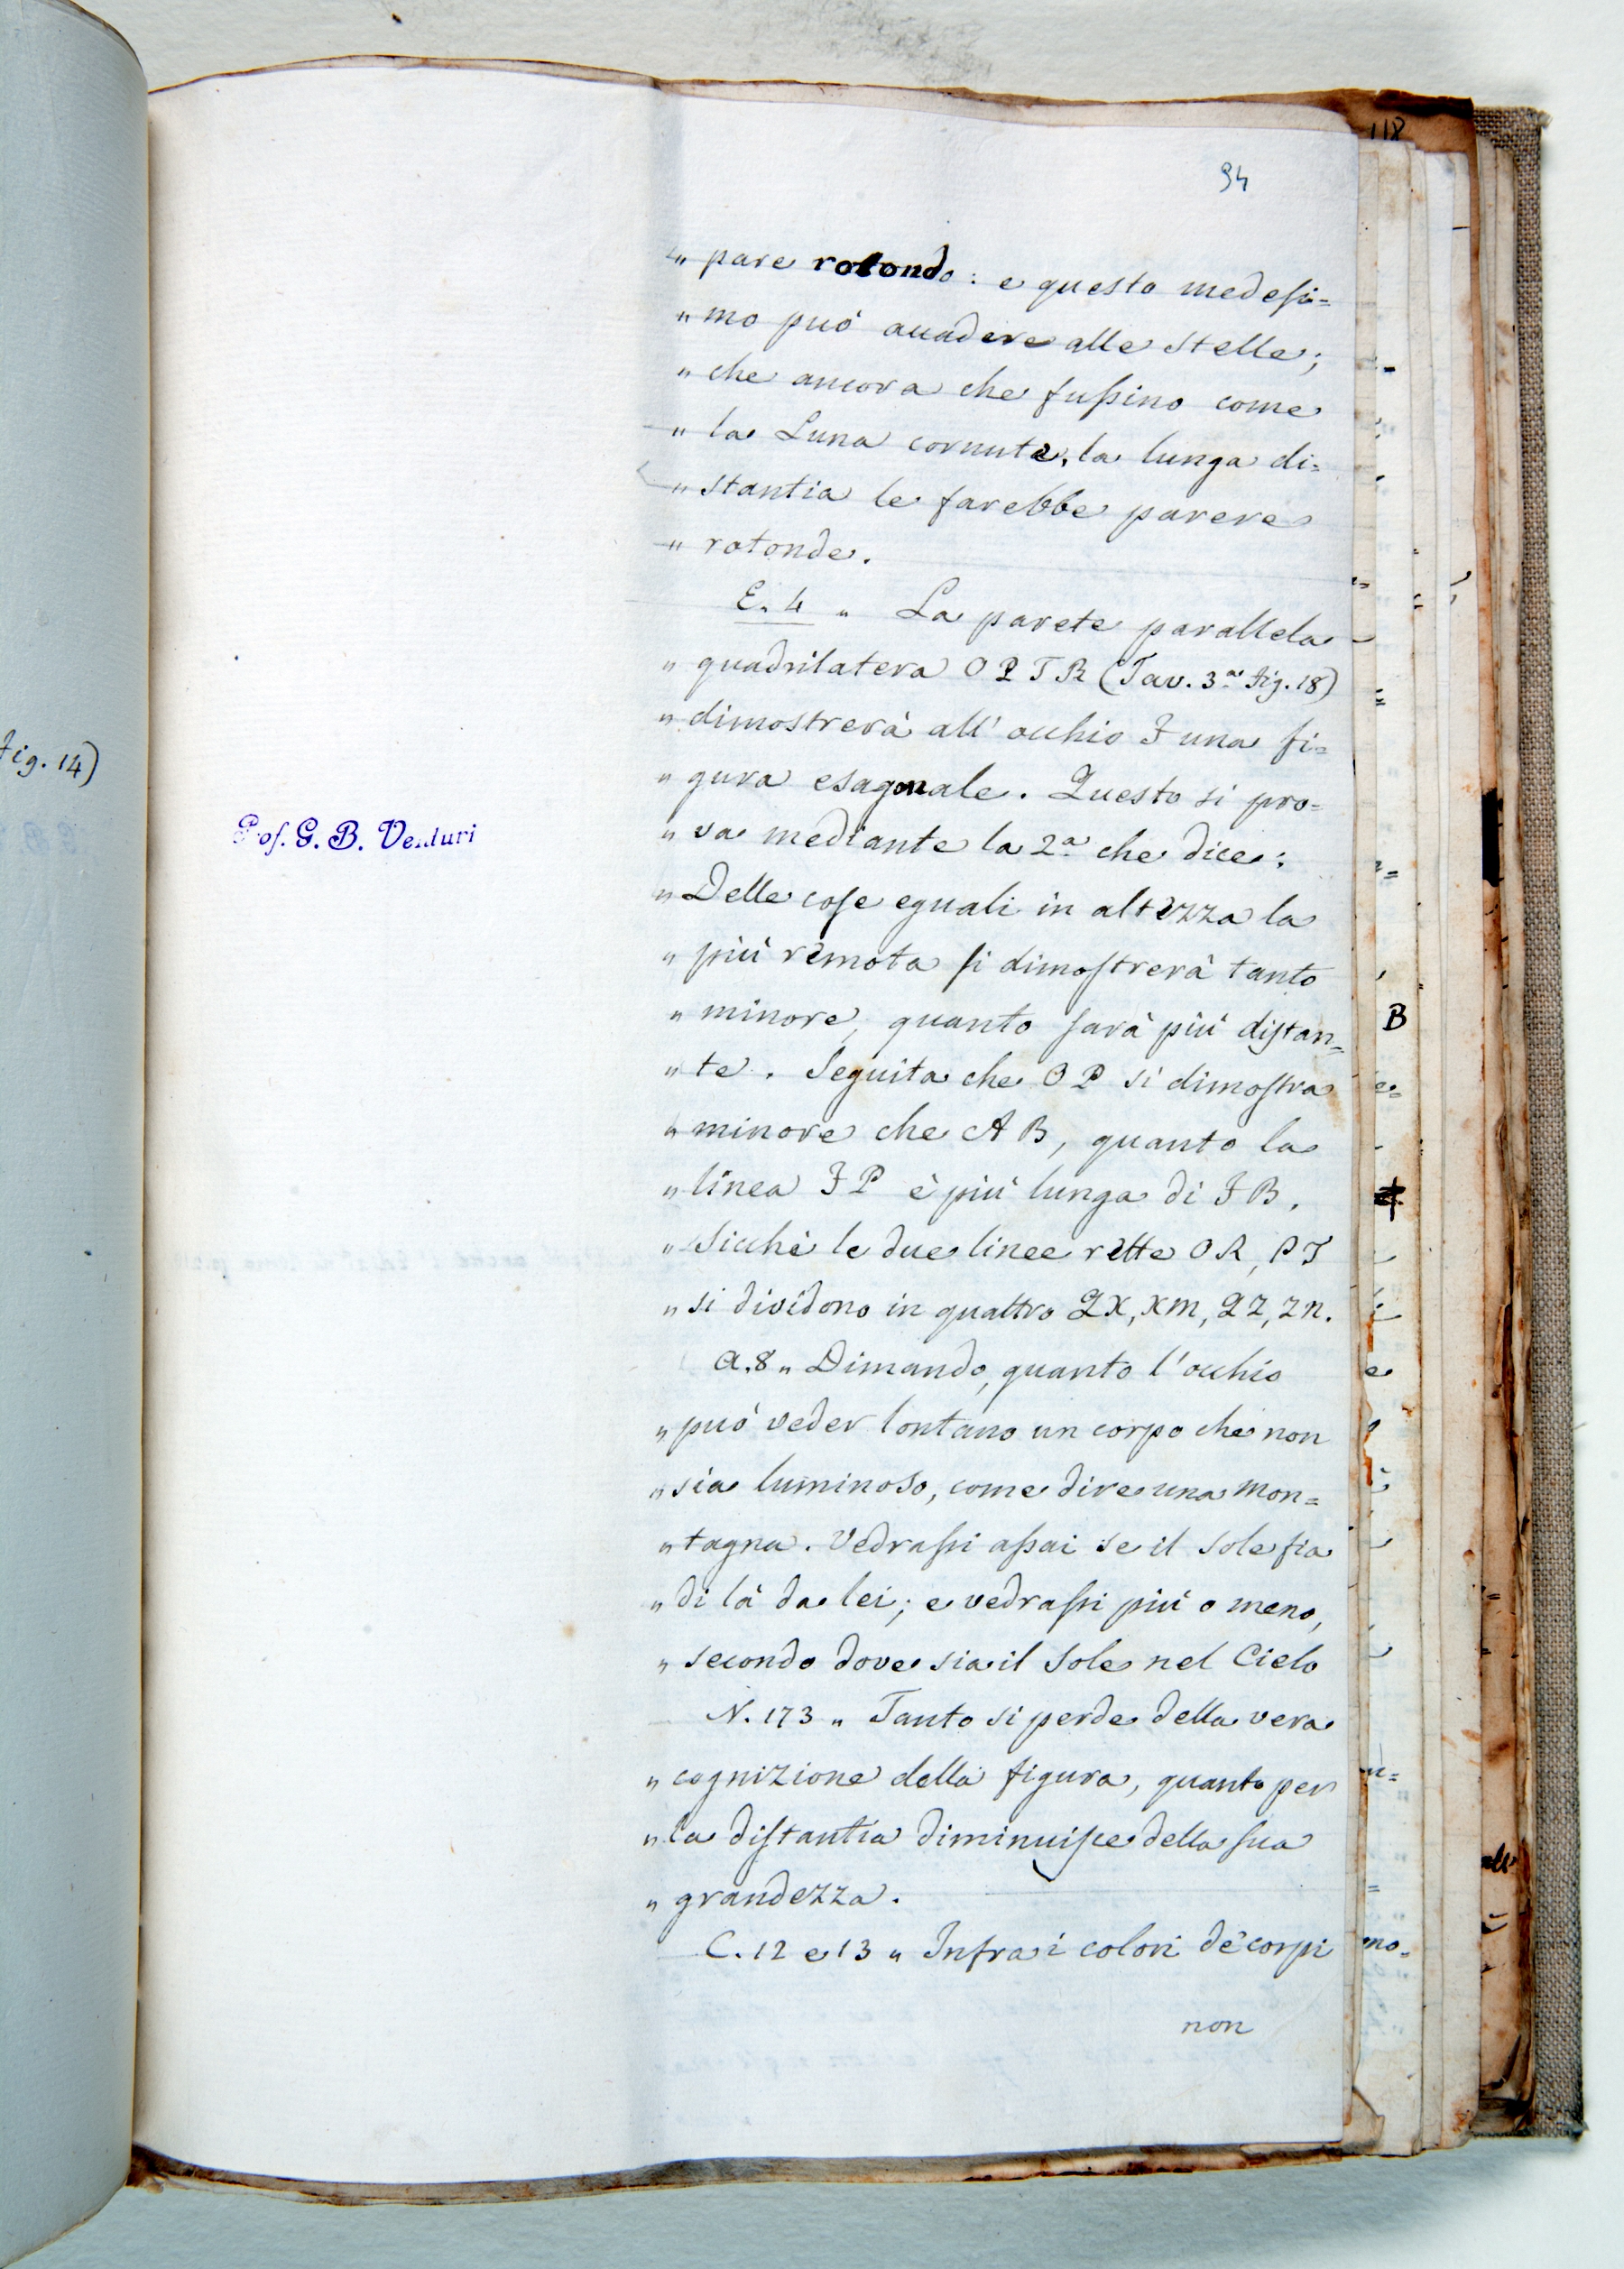 118
94
„ pare rotondo: e questo medesi=
„ mo può accadere alle stelle;
„ che ancora che fussino come
„ la Luna cornute, la lunga di=
„ stantia le farebbe parere
„ rotonde.
E. 4 „ La parete parallela
„ quadrilatera O P T R (Tav. 3.ª fig. 18)
„ dimostrerà all'occhio I una fi=
„ gura esagonale. Questo si pro=
„ va mediante la 2.ª che dice:
fig. 14)
Prof. G. B. Venturi
„ Delle cose eguali in altezza la
„ più remota si dimostrerà tanto
„ minore, quanto sarà più distan=
„ te. Seguita che O P si dimostra
„ minore che A B, quanto la
„ linea I P è più lunga di I B.
„ Sicchè le due linee rette O R, P T
„ si dividono in quattro Q X, X m, Q Z, Z n.
A. 8 „ Dimando, quanto l'occhio
„ può veder lontano un corpo che non
„ sia luminoso, come dire una mon=
„ tagna. Vedrassi assai se il sole sia
„ di là da lei; e vedrassi più o meno,
„ secondo dove sia il Sole nel Cielo
N. 173 „ Tanto si perde della vera
„ cognizione della figura, quanto per
„ la distantia diminuisce della sua
„ grandezza.
C. 12 e 13 „ Infra i colori de' corpi
non